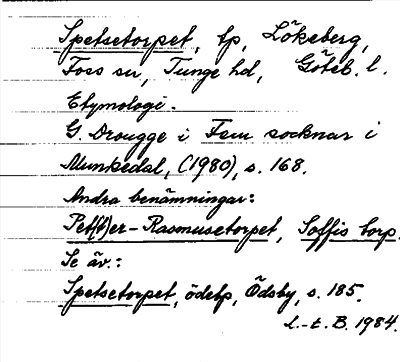 Spetsetorpet, tp, Lökeberg,
Foss sn, Tunge hd, Göteb. l.
Etymologi.
G. Drougge i Fem socknar i
Munkedal, (1980), s. 168.
Andra benämningar:
Pet(t)er-Rasmusetorpet, Soffis torp.
Se äv.:
Spetsetorpet, ödetp, Ödsby, s. 185.
L.-t. B. 1984.